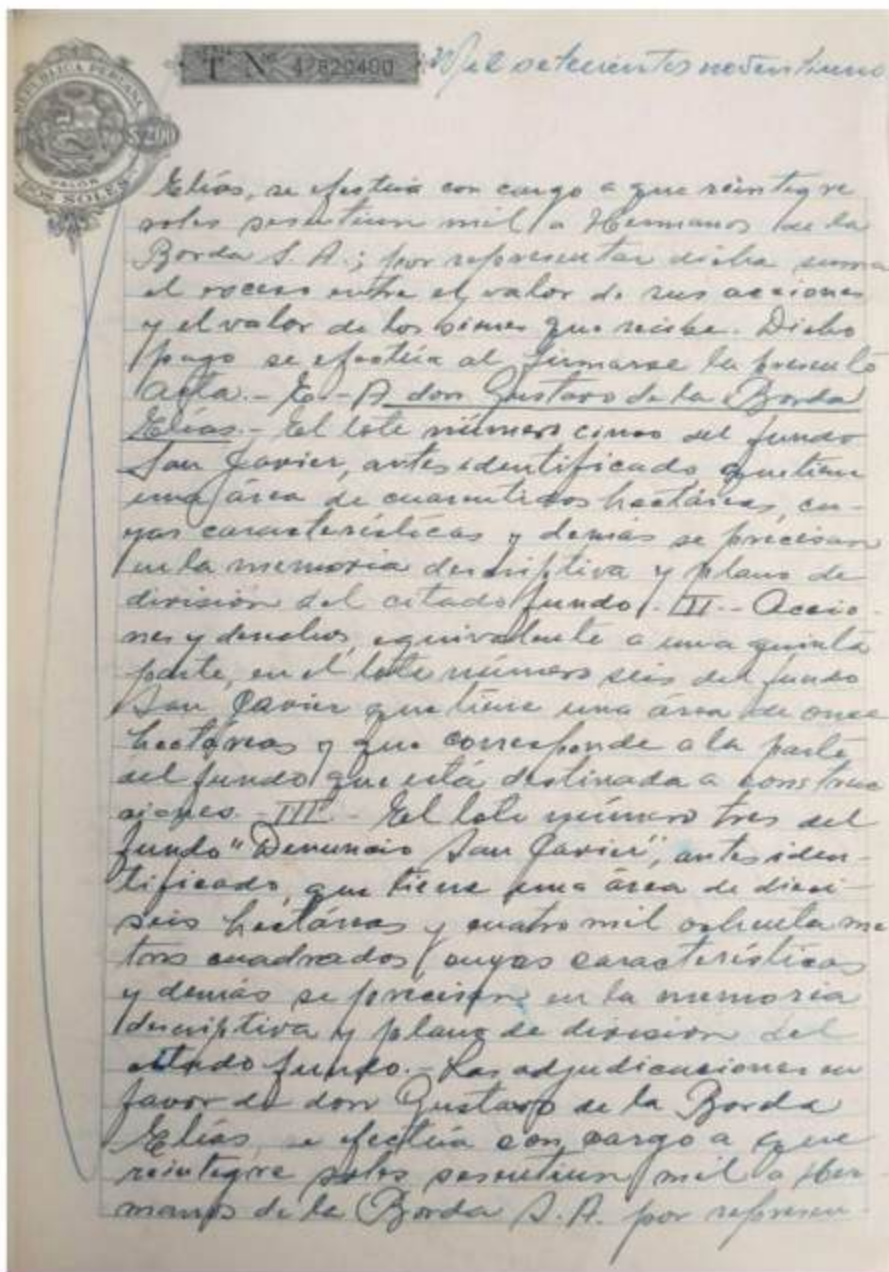 REPUBLICA PERUANA
S/ 2.00
VALOR
DOS SOLES
T Nº 47820400
mil setecientos noventiuno
Elías, se efectúa con cargo a que reintegre
soles sesentiun mil a Hermanos de la
Borda S. A.; por representar dicha suma
el exceso entre el valor de sus acciones
y el valor de los bienes que recibe. Dicho
pago se efectúa al firmarse la presente
acta.- E.- A don Gustavo de la Borda
Elías.- El lote número cinco del fundo
San Javier, antes identificado que tiene
una área de cuarentidos hectáreas, cu-
yas características y demás se precisan
en la memoria descriptiva y plano de
división del citado fundo.- II.- Accio-
nes y derechos, equivalente a una quinta
parte, en el lote número seis del fundo
San Javier que tiene una área de once
hectáreas y que corresponde a la parte
del fundo que está destinada a construc
ciones.- III.- El lote número tres del
fundo "Denuncio San Javier", antes iden-
tificado, que tiene una área de dieci-
seis hectáreas y cuatro mil ochenta me
tros cuadrados cuyas características
y demás se precisan en la memoria
descriptiva y plano de división del
citado fundo.- Las adjudicaciones en
favor de don Gustavo de la Borda
Elías, se efectúa con cargo a que
reintegre soles sesentiun mil a Her-
manos de la Borda S. A. por represen-